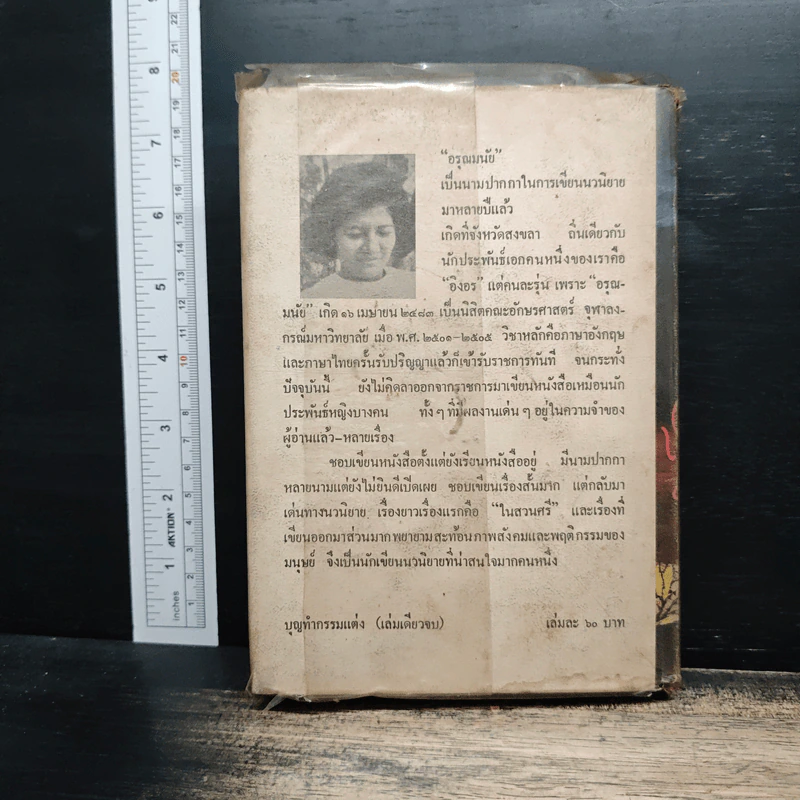 "อรุณมนัย"
เป็นนามปากกาในการเขียนนวนิยาย
มาหลายปีแล้ว
เกิดที่จังหวัดสงขลา ถิ่นเดียวกับ
นักประพันธ์เอกคนหนึ่งของเราคือ
"อิงอร" แต่คนละรุ่น เพราะ "อรุณ-
มนัย" เกิด ๑๖ เมษายน ๒๔๘๓ เป็นนิสิตคณะอักษรศาสตร์ จุฬาลง-
กรณ์มหาวิทยาลัย เมื่อ พ.ศ. ๒๕๐๑–๒๕๐๕ วิชาหลักคือภาษาอังกฤษ
และภาษาไทยครั้นรับปริญญาแล้วก็เข้ารับราชการทันที จนกระทั่ง
ปัจจุบันนี้ ยังไม่คิดลาออกจากราชการมาเขียนหนังสือเหมือนนัก
ประพันธ์หญิงบางคน ทั้ง ๆ ที่มีผลงานเด่น ๆ อยู่ในความจำของ
ผู้อ่านแล้ว–หลายเรื่อง
ชอบเขียนหนังสือตั้งแต่ยังเรียนหนังสืออยู่ มีนามปากกา
หลายนามแต่ยังไม่ยินดีเปิดเผย ชอบเขียนเรื่องสั้นมาก แต่กลับมา
เด่นทางนวนิยาย เรื่องยาวเรื่องแรกคือ "ในสวนศรี" และเรื่องที่
เขียนออกมาส่วนมากพยายามสะท้อนภาพสังคมและพฤติกรรมของ
มนุษย์ จึงเป็นนักเขียนนวนิยายที่น่าสนใจมากคนหนึ่ง
บุญทำกรรมแต่ง (เล่มเดียวจบ) เล่มละ ๖๐ บาท
inches 1 2 3 4 5 6 7 8
AKTION
1 2 3 4 5 6 7 8 9 10 11 12 13 14 15 16 17 18 19 20 21 22